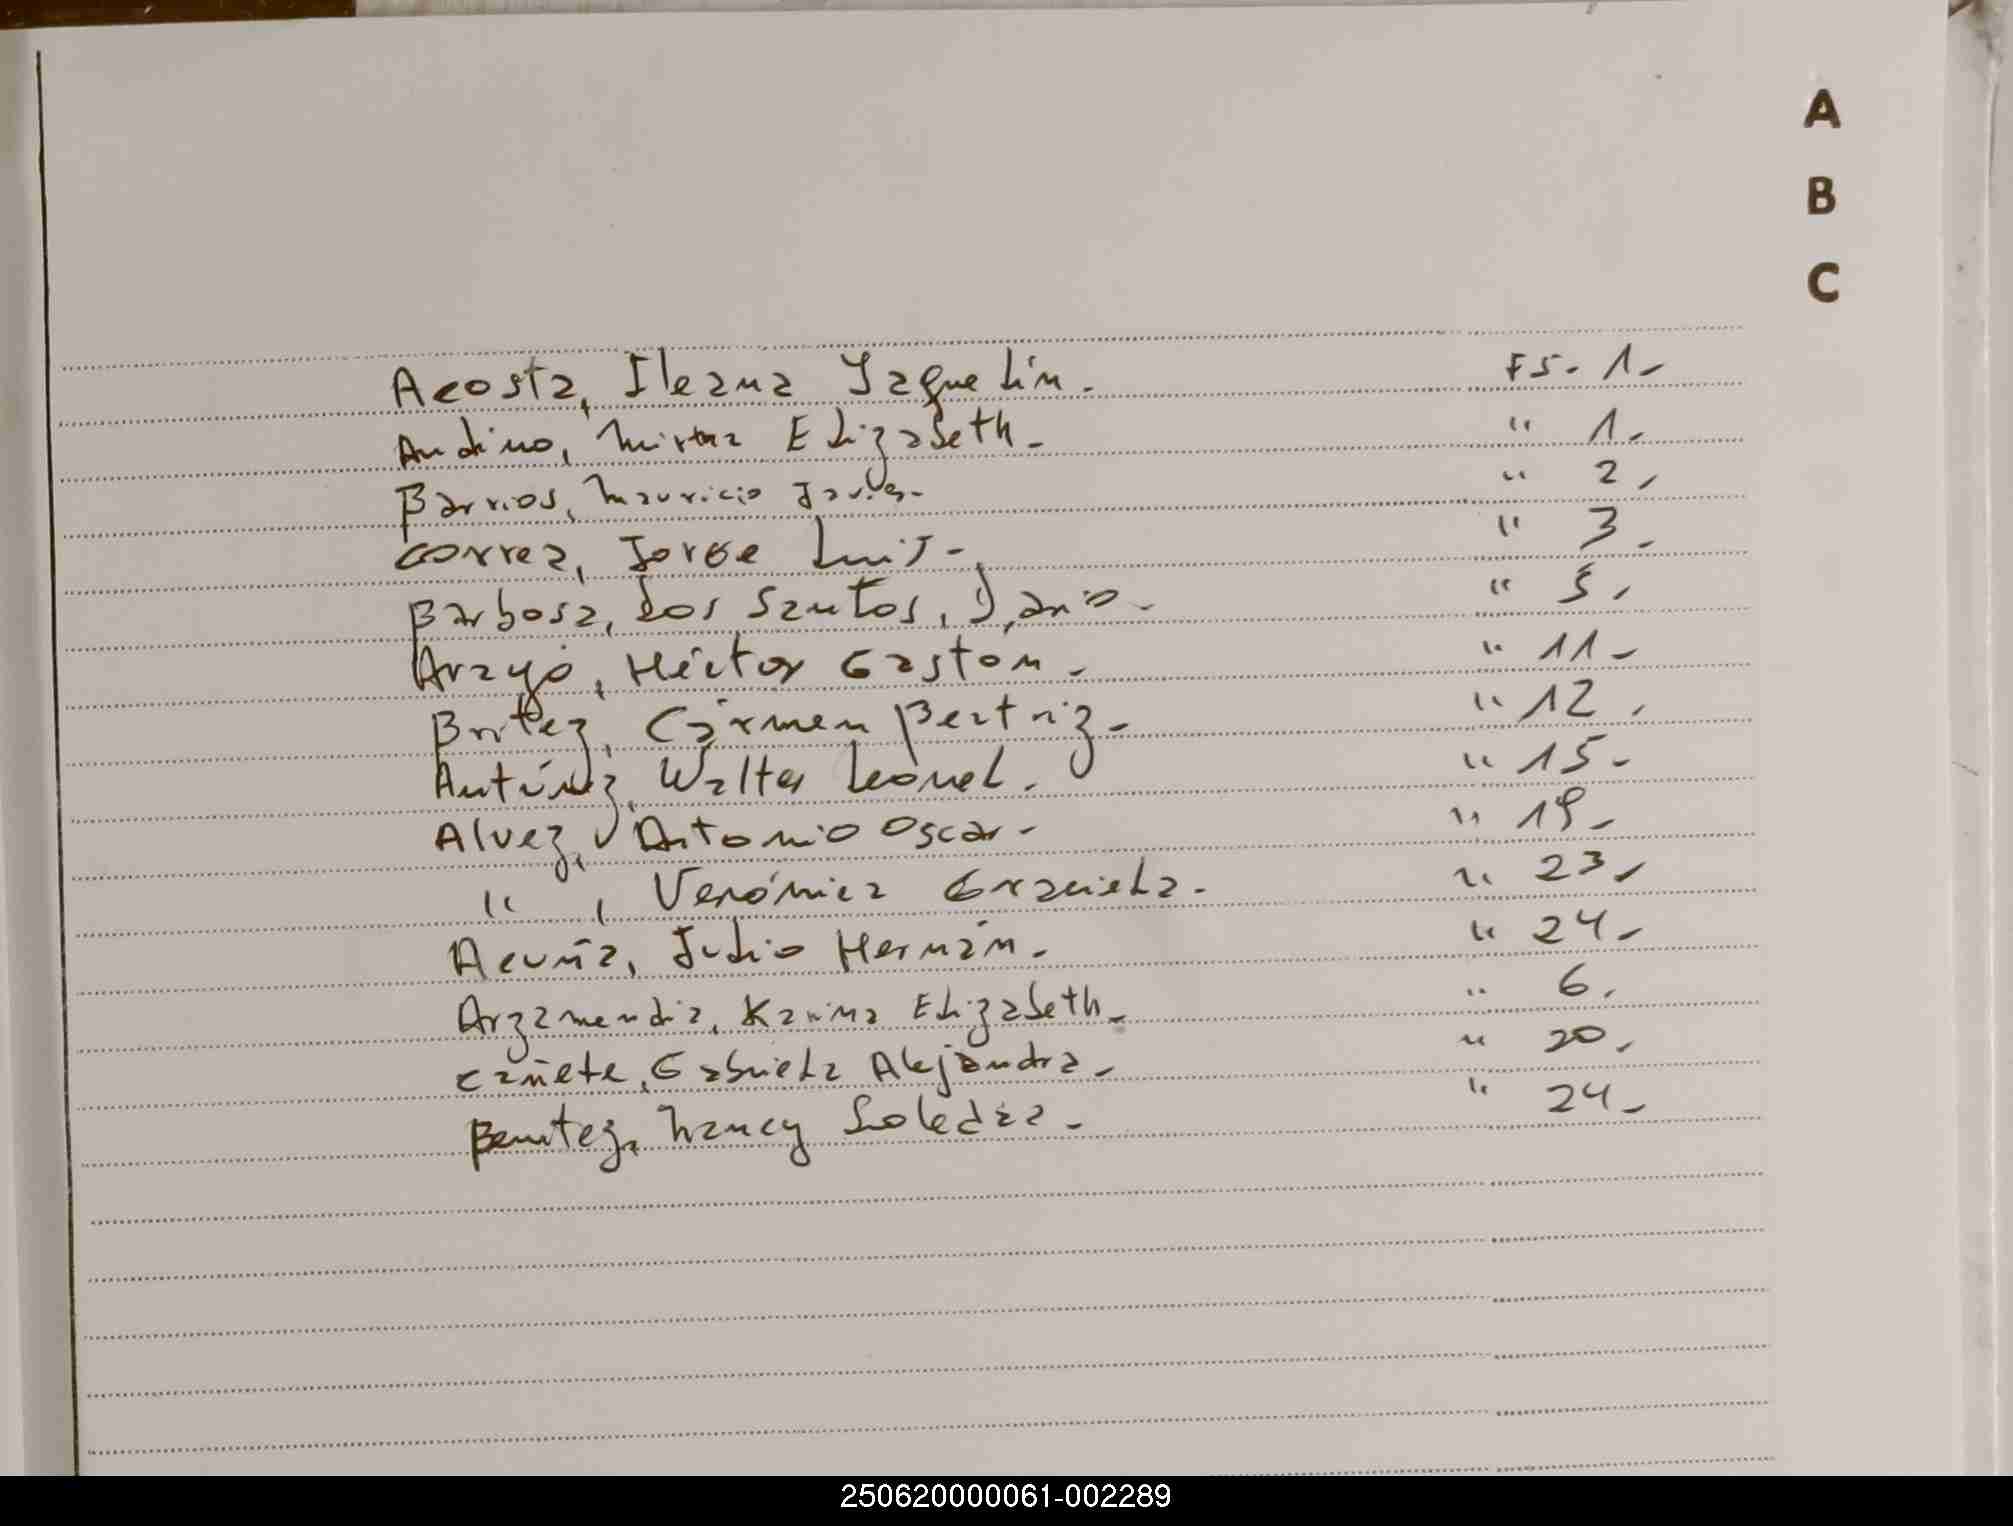 A
B
C
Acosta, Ileana Jaquelin. FS. 1.-
Andino, Mirtha Elizabeth. " 1.-
Barrios, Mauricio Javier. " 2.
Correa, Jorge Luis. " 3.
Barbosa, dos Santos, Dario. " 5.
Arayó, Héctor Gastón. " 11.-
Britez, Cármen Beatriz. " 12.
Antúnez, Walter Leonel. " 15.-
Alvez, Antonio Oscar. " 19.-
" , Verónica Graciela. " 23.-
Acuña, Julio Hernán. " 24.-
Arzamendia, Karina Elizabeth. " 6.
Cañete, Gabriela Alejandra. " 20.
Benitez, Nancy Soledad. " 24.-
250620000061-002289